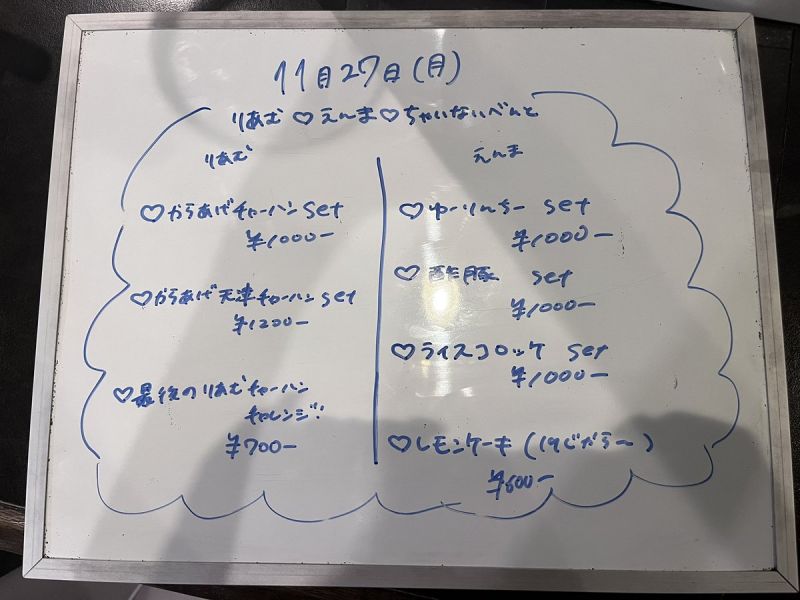 11月27日(月)
りあむ♡えんま♡ちゃいないべんと
りあむ
♡からあげチャーハン set
¥1000-
♡からあげ天津チャーハン set
¥1200-
♡最後のりあむチャーハン
チャレンジ!!
¥700-
えんま
♡ゆーりんちー set
¥1000-
♡酢豚 set
¥1000-
♡ライスコロッケ set
¥1000-
♡レモンケーキ(19じから〜)
¥600-